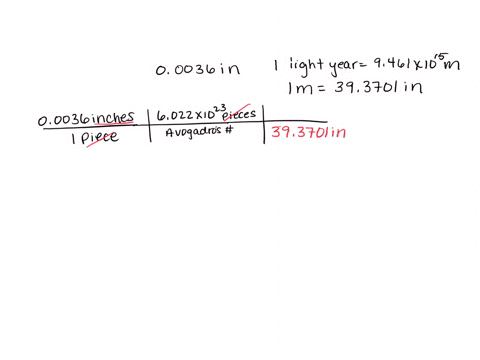 0.0036 in
1 light year = 9.461 x 10^15 m
1 m = 39.3701 in
0.0036 inches | 6.022 x 10^23 pieces |
1 piece | Avogadros # | 39.3701 in